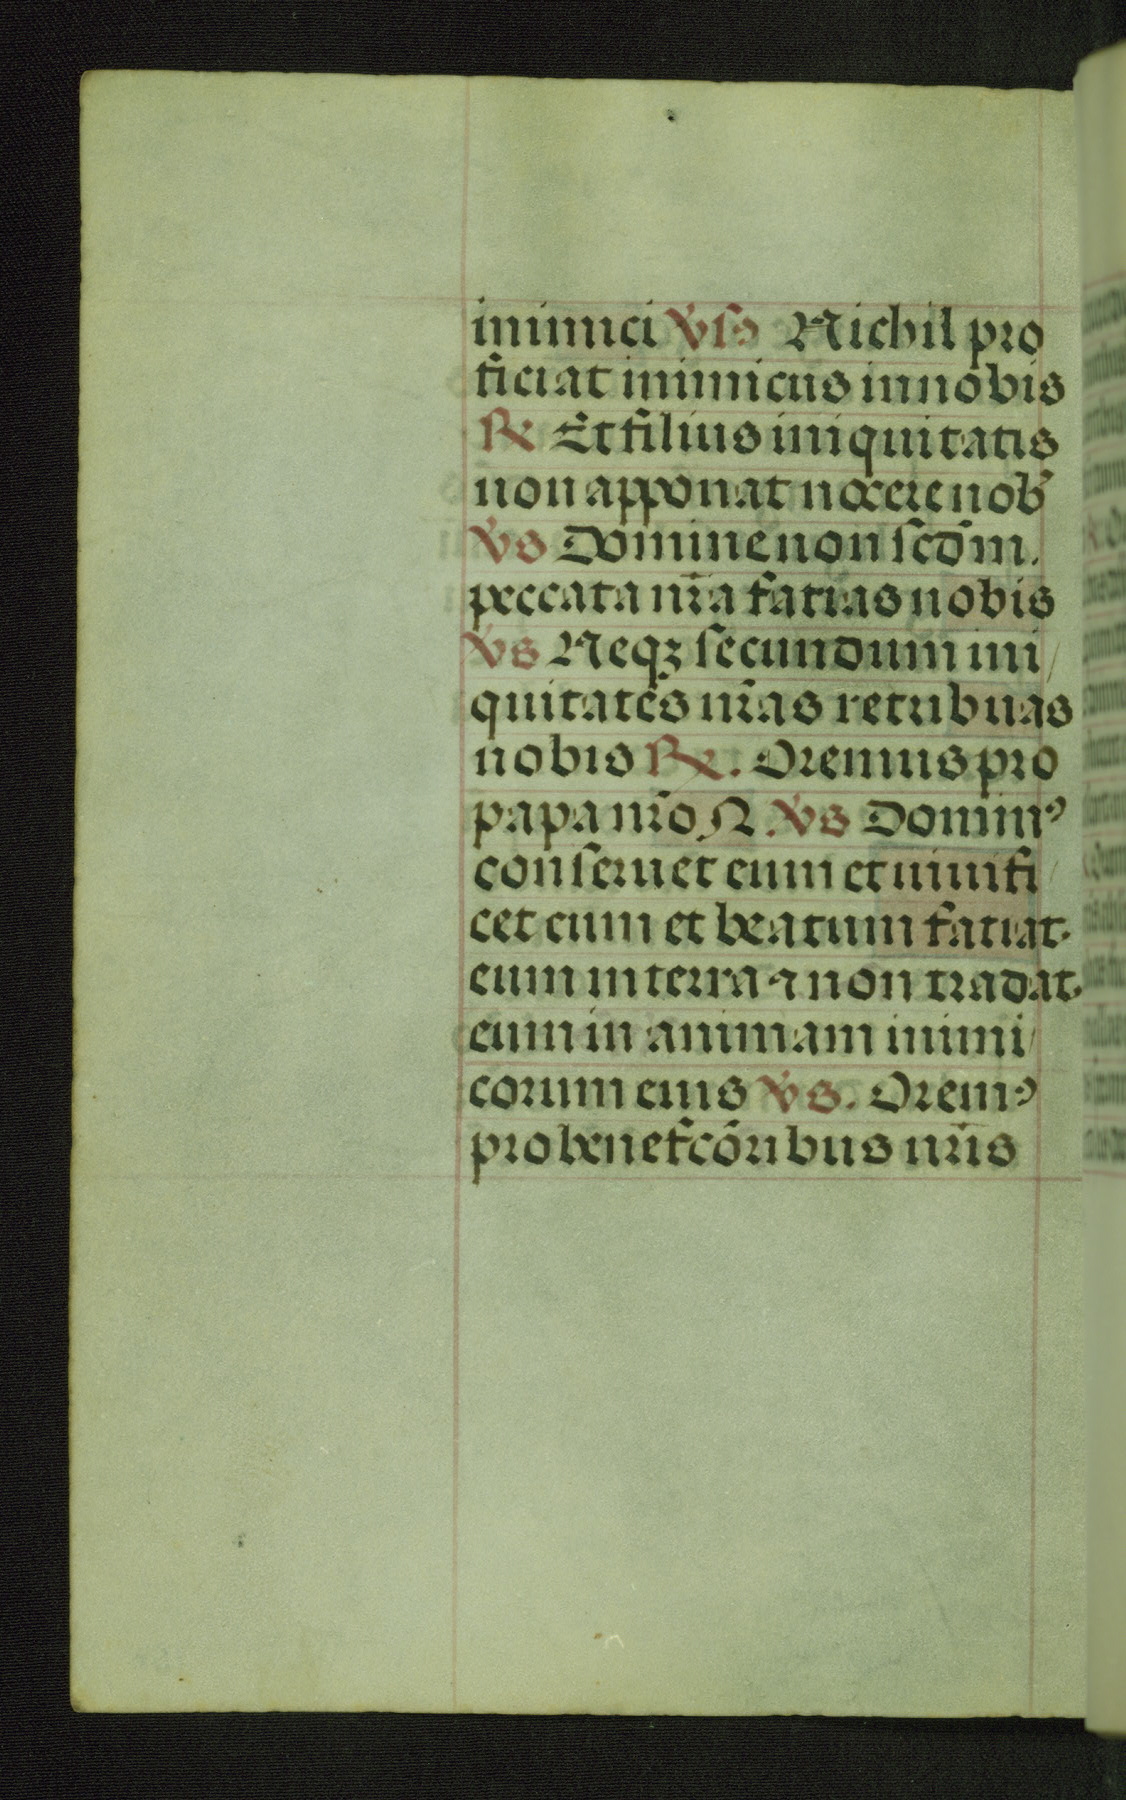 inimici v̾sꝰ Nichil pro
ficiat inimicus in nobis
℟ Et filius iniquitatis
non apponat nocere nob̾
v̾s Domine non scd̄m.
peccata nr̄a fatias nobis
v̾s Neqꝫ secundum ini/
quitates nr̄as retribuas
nobis ℟. Oremus pro
papa nr̄o N. v̾s Dominꝰ
conseruet eum et uiuifi
cet eum et beatum fatiat.
eum in terra ⁊ non tradat.
eum in animam inimi/
corum eius v̾s. Oremꝰ
pro benefcōribus nr̄is